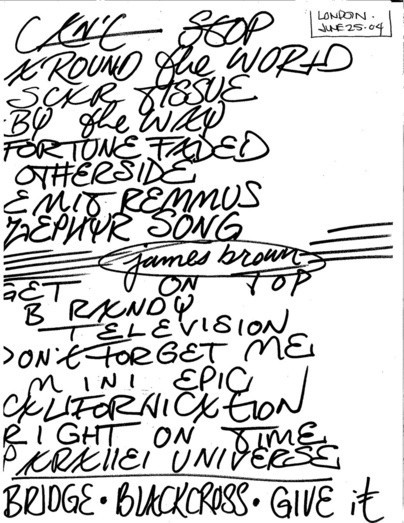 LONDON.
JUNE 25·04
CAN'T STOP
AROUND the WORLD
SCAR TISSUE
BY the WAY
FORTUNE FADED
OTHERSIDE
EMIT REMMUS
ZEPHYR SONG
james brown
GET ON TOP
BRANDY
TELEVISION
DON't FORGET ME
MINI EPIC
CALIFORNICAtION
RIGHT ON TIME
PARAllEl UNIVERSE
BRIDGE · BLACKCROSS · GIVE it